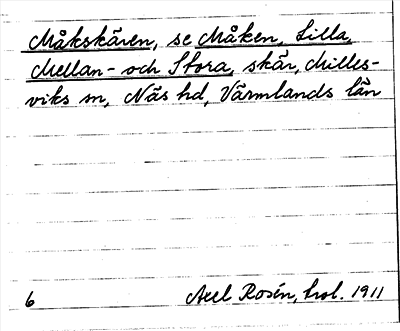 Måkskären, se Måken, Lilla,
Mellan- och Stora, skär, Milles-
viks sn, Näs hd, Värmlands län
6 Axel Rosén, kol. 1911